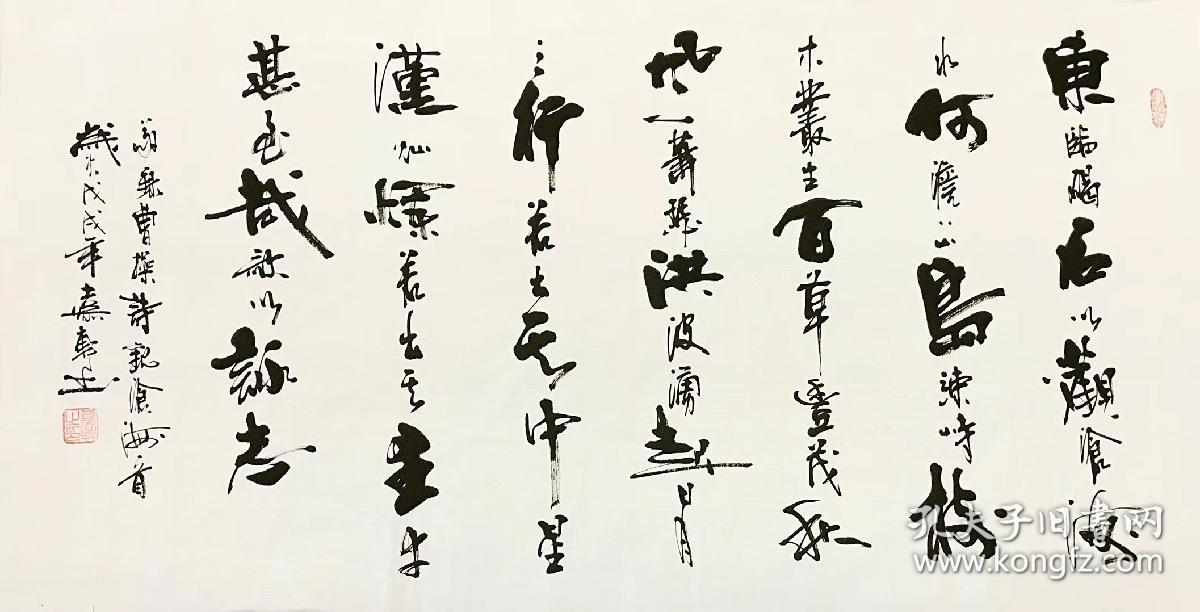 東臨碣石以觀滄海
水何澹〻山島竦峙樹
木叢生百草豐茂秋
風蕭瑟洪波湧起日月
之行若出其中星
漢灿爛若出其里幸
甚至哉歌以詠志
錄曹操詩觀滄海首
歲次戊戌年嘉軒書
孔夫子旧書网
www.kongfz.com